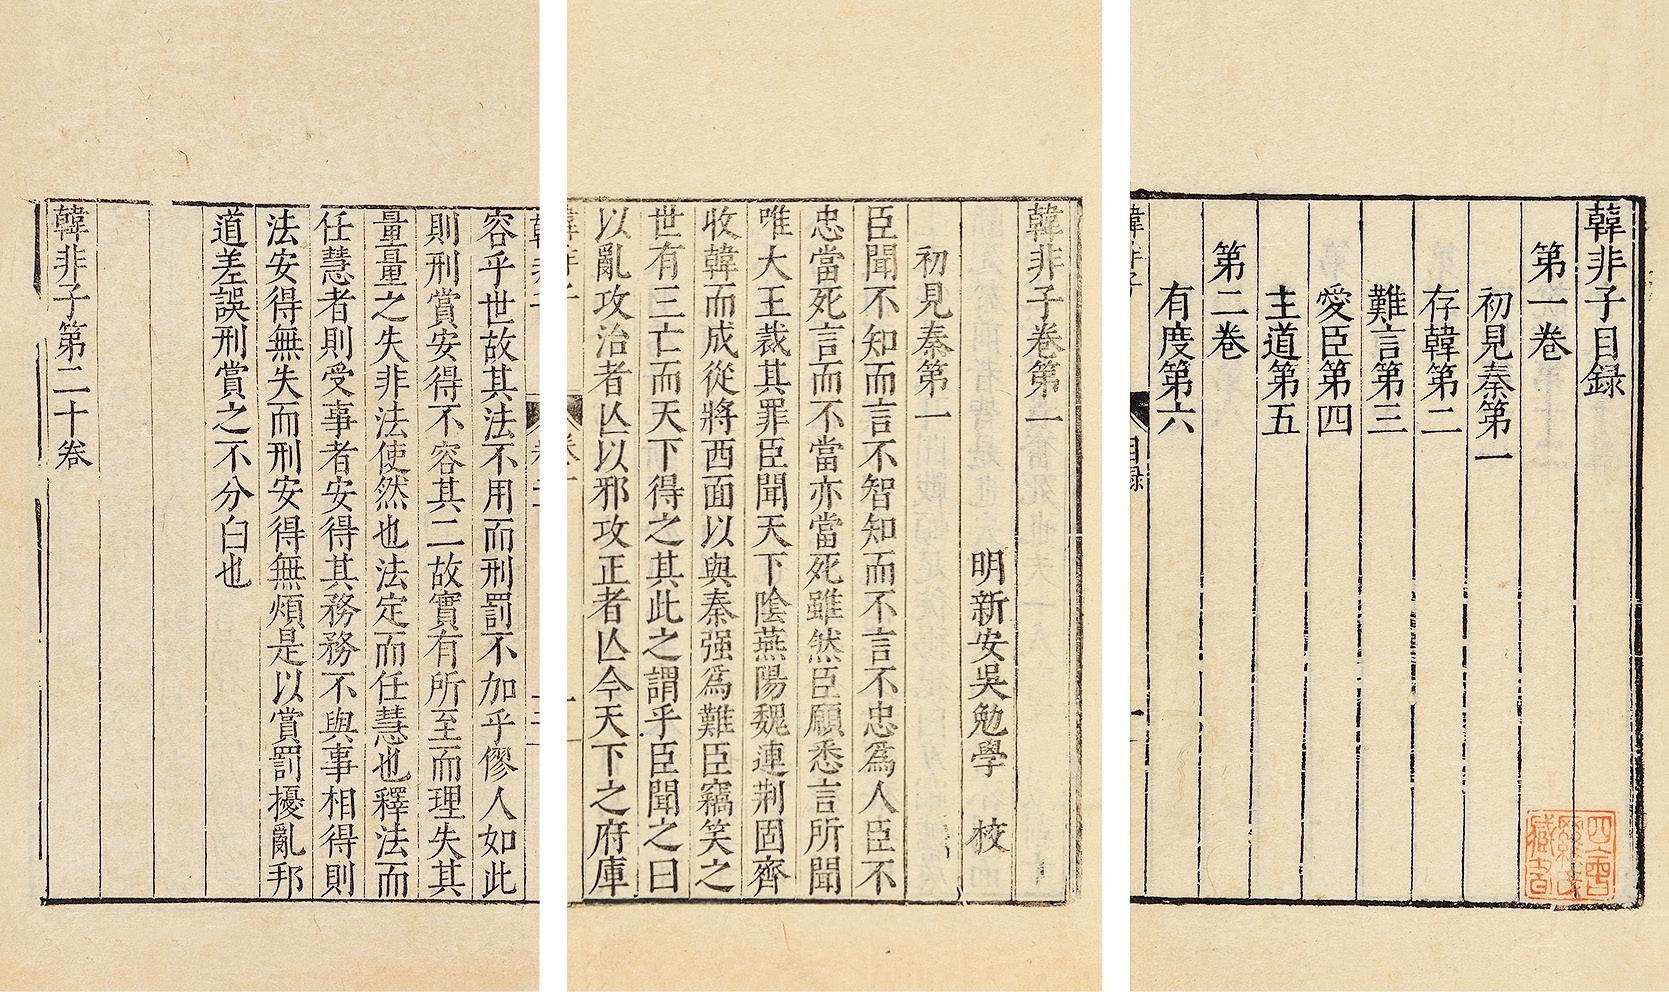 韓非子目録
第一卷
初見秦第一
存韓第二
難言第三
愛臣第四
主道第五
第二卷
有度第六
目録
韓非子卷第一
明新安吳勉學　校
初見秦第一
臣聞不知而言不智知而不言不忠爲人臣不
忠當死言而不當亦當死雖然臣願悉言所聞
唯大王裁其罪臣聞天下陰燕陽魏連荆固齊
收韓而成從將西面以與秦强爲難臣竊笑之
世有三亡而天下得之其此之謂乎臣聞之曰
以亂攻治者亾以邪攻正者亾今天下之府庫
容乎世故其法不用而刑罰不加乎僇人如此
則刑賞安得不容其二故實有所至而理失其
量量之失非法使然也法定而任慧也釋法而
任慧者則受事者安得其務務不與事相得則
法安得無失而刑安得無煩是以賞罰擾亂邦
道差誤刑賞之不分白也
韓非子第二十卷